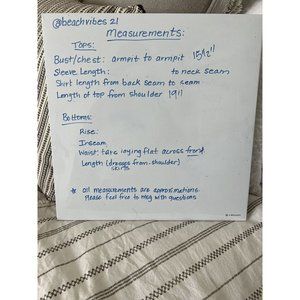 @beachvibes 21
Measurements:
Tops:
Bust/chest: armpit to armpit 15 1/2"
Sleeve Length: to neck seam
Shirt length from back seam to seam
Length of top from shoulder 19"
Bottoms:
Rise:
Inseam
Waist: taken laying flat across front
Length (dresses from shoulder)
skirts
* all measurements are approximations.
Please feel free to msg with questions